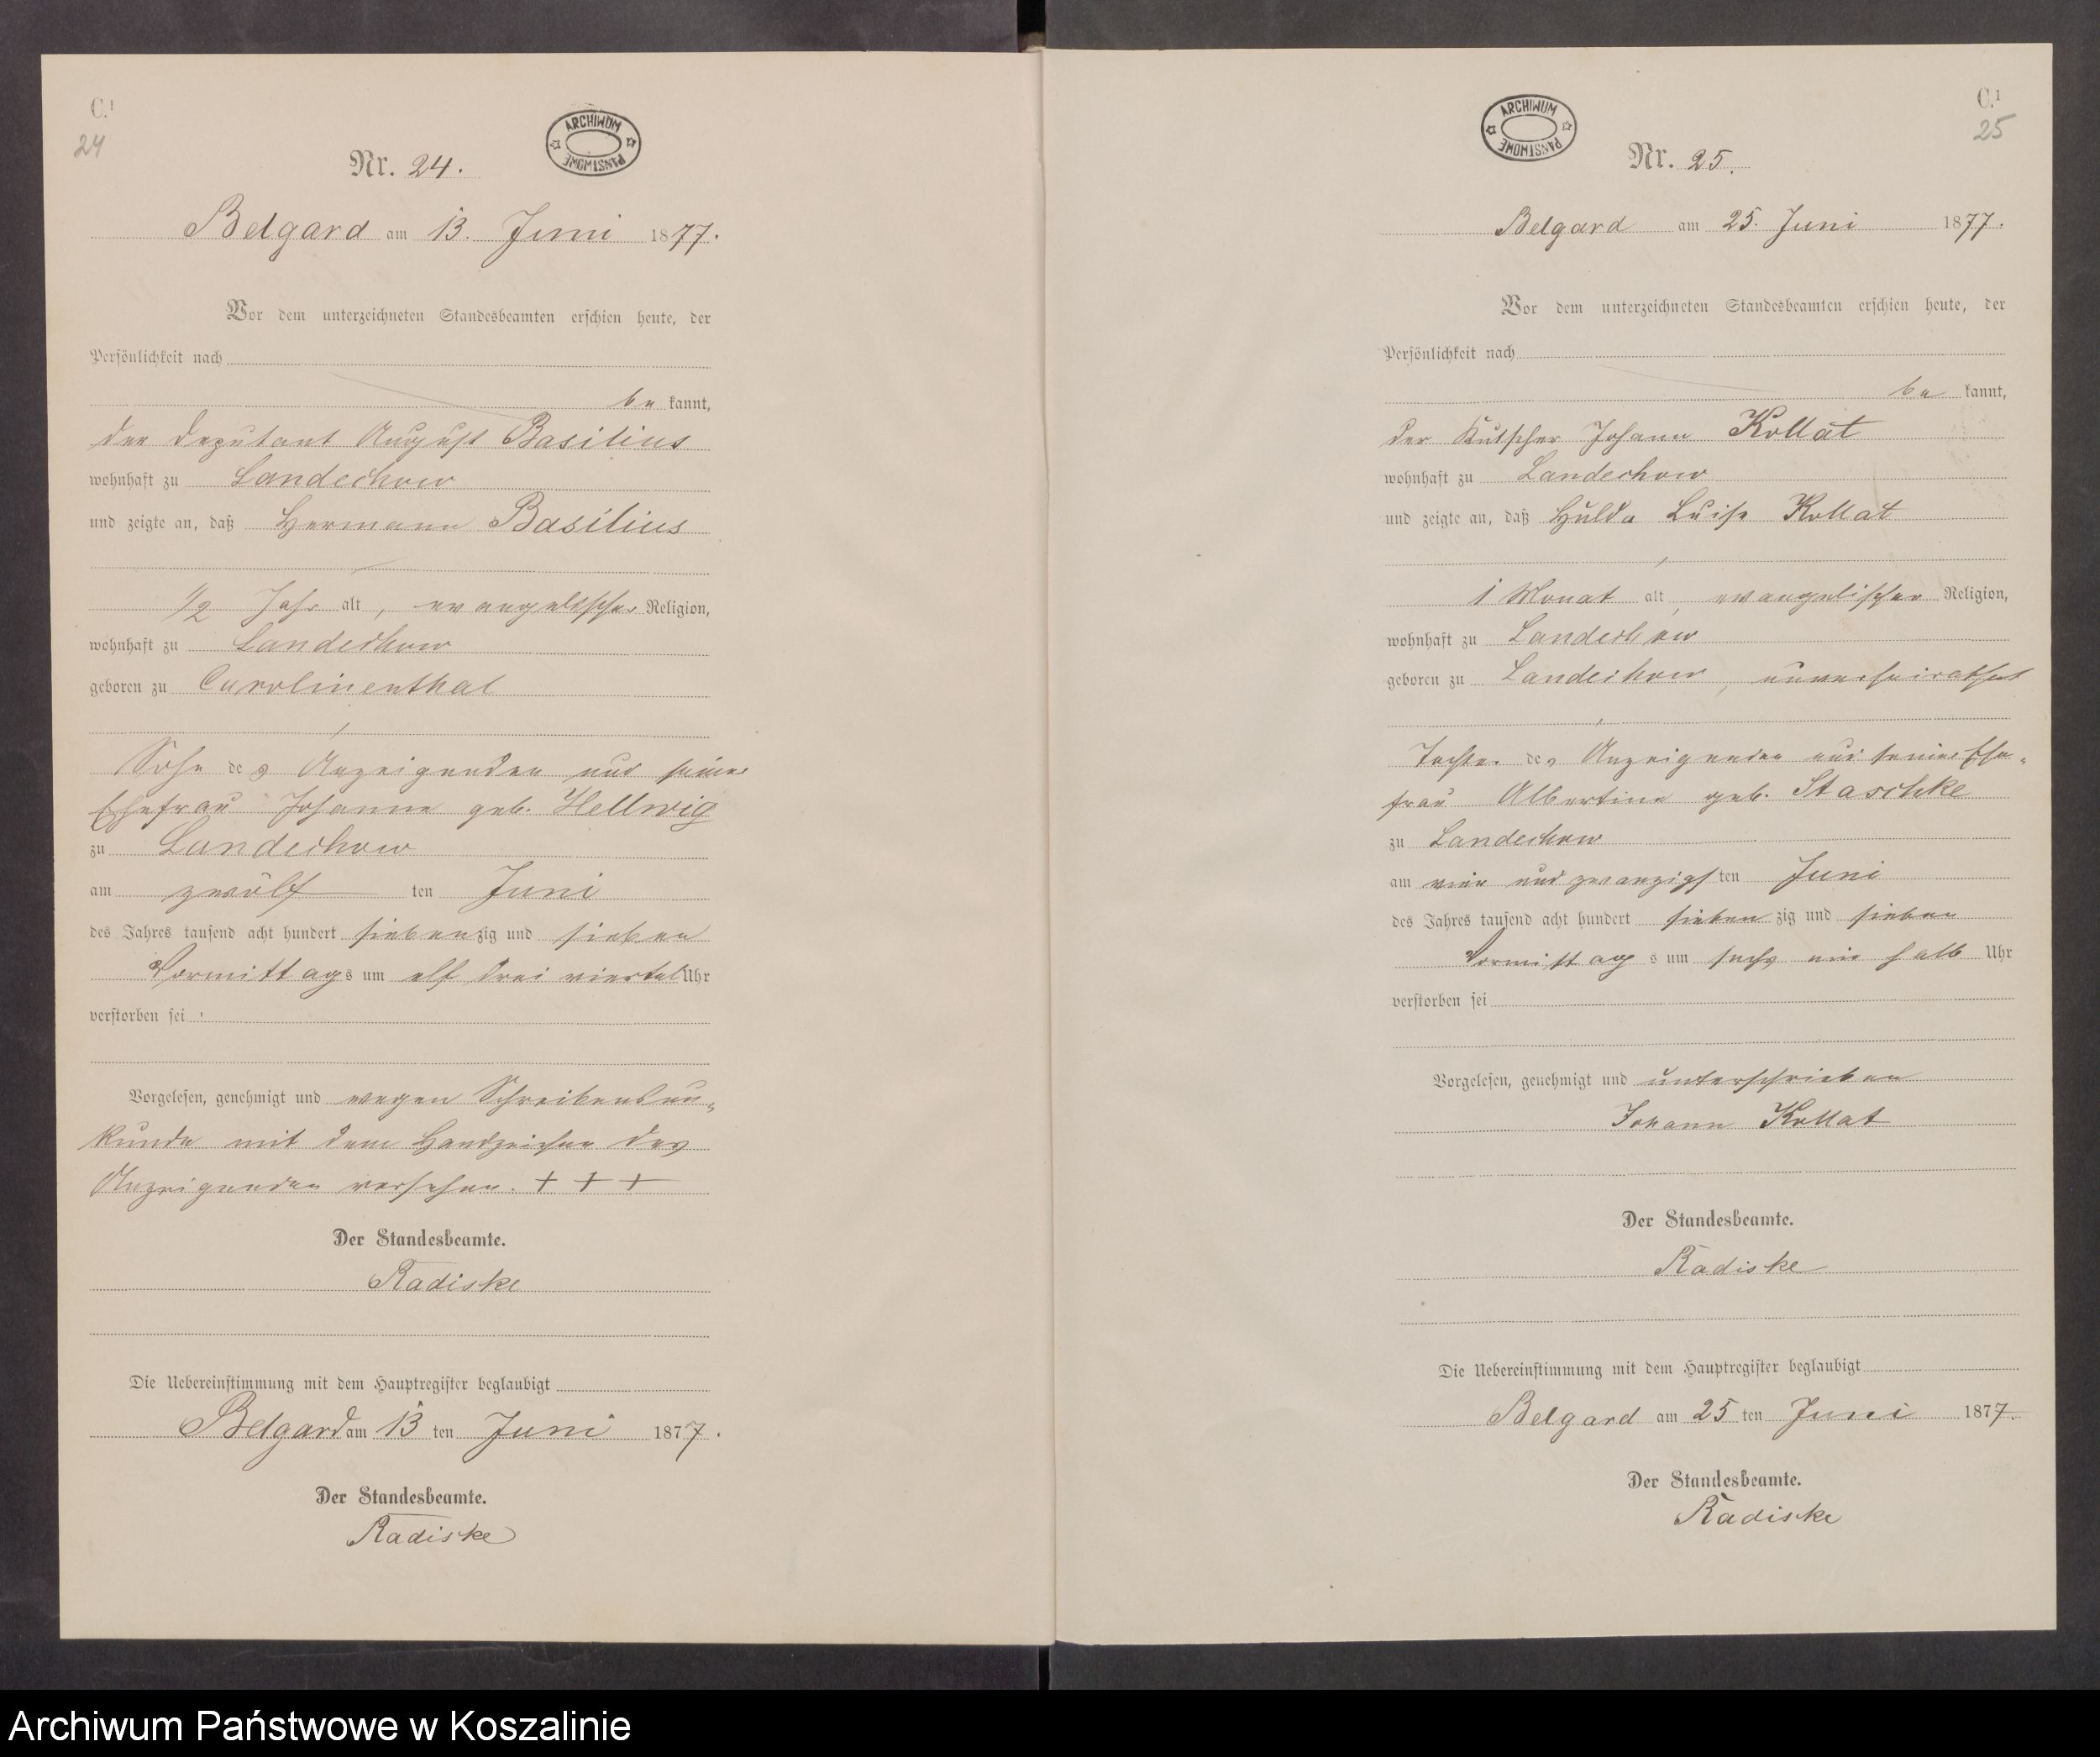 C.¹
24
ARCHIWUM
PAŃSTWOWE
Nr. 24.
Belgard am 13. Juni 1877.
Vor dem unterzeichneten Standesbeamten erschien heute, der
Persönlichkeit nach
be kannt,
der Deputant August Basilius
wohnhaft zu Landechow
und zeigte an, daß Hermann Basilius
1/2 Jahr alt, evangelischer Religion,
wohnhaft zu Landechow
geboren zu Carolinenthal
Sohn des Anzeigenden und seiner
Ehefrau Johanne geb. Hellwig
zu Landechow
am zwölf ten Juni
des Jahres tausend acht hundert siebenzig und sieben
Vormittags um elf drei viertel Uhr
verstorben sei
Vorgelesen, genehmigt und wegen Schreibensun-
kunde mit dem Handzeichen des
Anzeigenden versehen. + + +
Der Standesbeamte.
Radiske
Die Uebereinstimmung mit dem Hauptregister beglaubigt
Belgard am 13 ten Juni 1877.
Der Standesbeamte.
Radiske
C.¹
25
ARCHIWUM
PAŃSTWOWE
Nr. 25.
Belgard am 25. Juni 1877.
Vor dem unterzeichneten Standesbeamten erschien heute, der
Persönlichkeit nach
be kannt,
der Kutscher Johann Kollat
wohnhaft zu Landechow
und zeigte an, daß Hulda Luise Kollat
1 Monat alt, evangelischer Religion,
wohnhaft zu Landechow
geboren zu Landechow, unverheirathet
Tochter des Anzeigenden und seiner Ehe-
frau Albertine geb. Staschke
zu Landechow
am vier und zwanzigsten Juni
des Jahres tausend acht hundert siebenzig und sieben
Vormittags um sechs ein halb Uhr
verstorben sei
Vorgelesen, genehmigt und unterschrieben
Johann Kollat
Der Standesbeamte.
Radiske
Die Uebereinstimmung mit dem Hauptregister beglaubigt
Belgard am 25 ten Juni 1877.
Der Standesbeamte.
Radiske
Archiwum Państwowe w Koszalinie